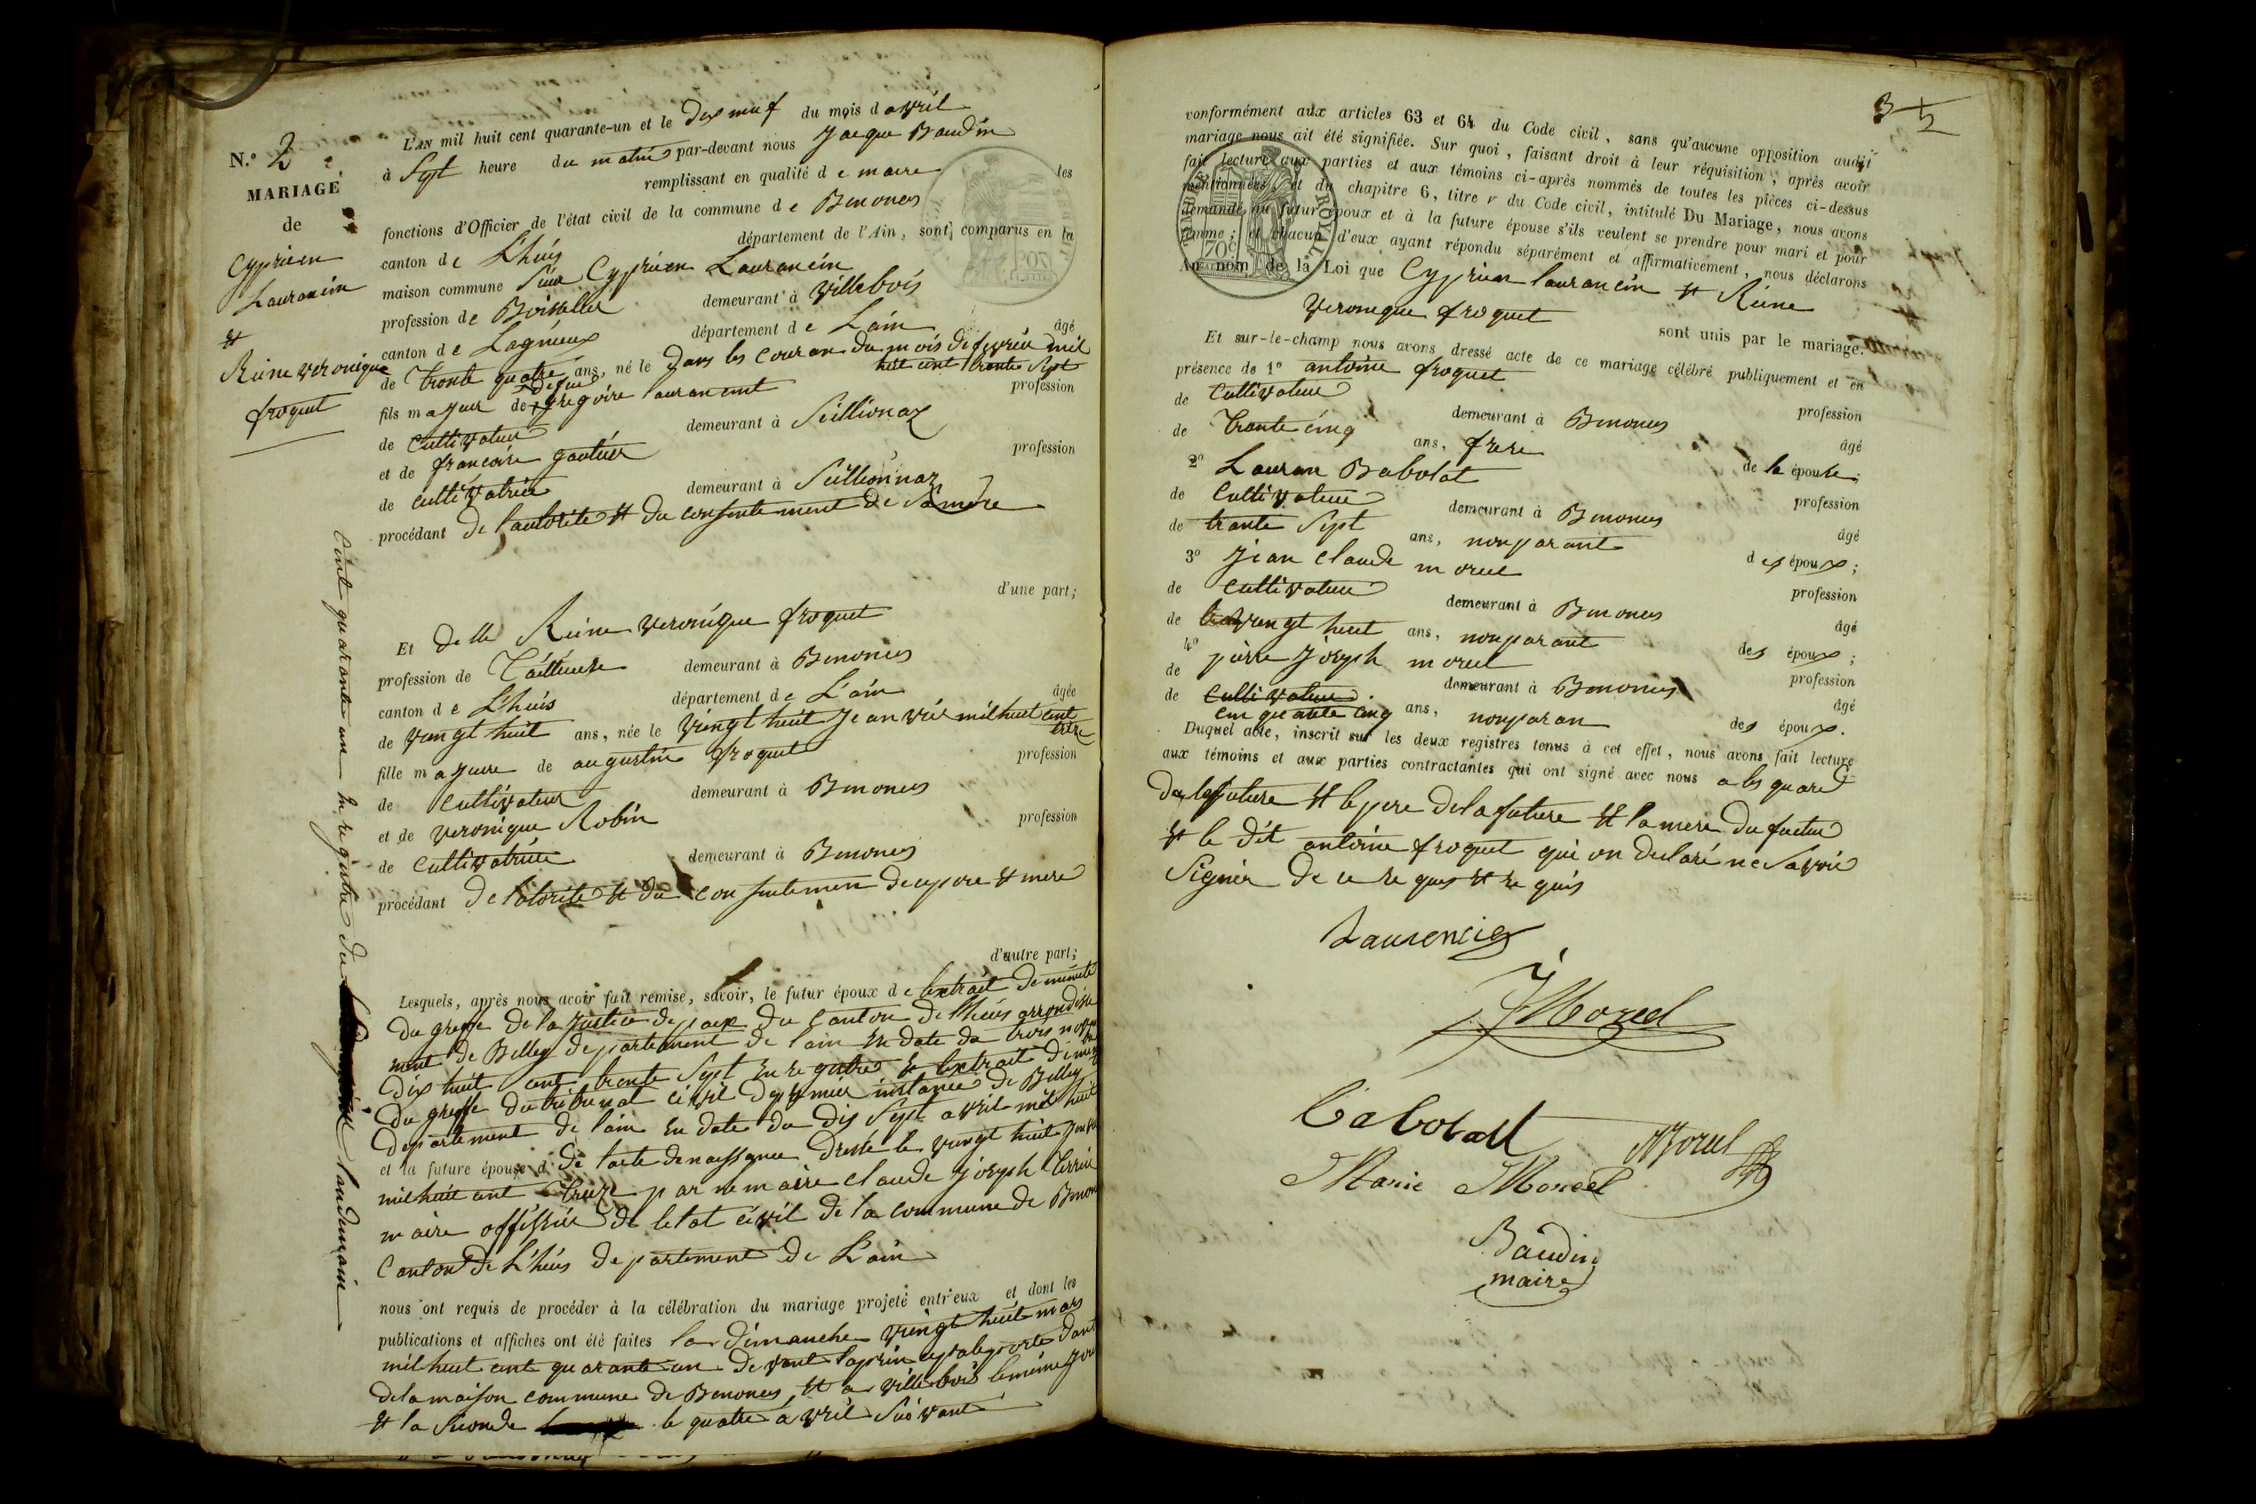 N.° 2
MARIAGE
de
Cyprien
Laurancin
et
Reine veronique
froquet
L'AN mil huit cent quarante-un et le dix neuf du mois d avril
à Sept heure du matin par-devant nous Jacque Baudin
remplissant en qualité d e maire les
fonctions d'Officier de l'état civil de la commune d e Benonces
canton d e L'huis département de l'Ain, sont comparus en la
maison commune Sieur Cyprien Laurancin
profession d e Boisselier demeurant à villebois
canton d e Lagnieux département d e Lain âgé
de trente quatre ans, né le dans les couran du mois de fevrier mil
huit cent trente Sept
fils majeur de defun gregoire laurancint profession
de cultivateur demeurant à Seillionaz
et de francoise gautier profession
de cultivatrice demeurant à Seillionnaz
procédant de l'autorite et du consentement de Samere
d'une part;
Et delle Reine veronique froquet
profession de Tailleuse demeurant à Benonces
canton d e L'huis département d e L'ain âgée
de vingt huit ans, née le vingt huit Janvier mil huit cent
treize
fille majeure de augustin froquet profession
de cultivateur demeurant à Benonces
et de veronique Robin profession
de cultivatrice demeurant à Benonces
procédant de lotorite et du consentemen de cepere et mere
d'autre part;
Lesquels, après nous avoir fait remise, savoir, le futur époux d e lextrait de minute
du greffe de la Justice de paix du canton de l'huis arrondisse
ment de Belley departement de lain en date du trois
dix huit cent trente Sept enregistre et lextrait de
du greffe du tribunal civil de premier instance de Belley
departement de lain en date du dix Sept avril mil huit
et la future épouse d de lacte de naissance dressé le vingt huit
mil huit cent treize par maire claude Joseph
maire offissier de letat civil de la commune de
Canton de L'huis departement de L'ain
nous ont requis de procéder à la célébration du mariage projeté entr'eux et dont les
publications et affiches ont été faites la dimanche vingt huit mars
mil huit cent quarante un devant la princypale porte dant
de la maison commune de Benonces et a villebois le meme Jour
et la Seconde le quatre avril Suivant
Cent quarante un enregistre du landemain
3
2
conformément aux articles 63 et 64 du Code civil, sans qu'aucune opposition audit
mariage nous ait été signifiée. Sur quoi, faisant droit à leur réquisition, après avoir
fait lecture aux parties et aux témoins ci-après nommés de toutes les pièces ci-dessus
mentionnées et du chapitre 6, titre v du Code civil, intitulé Du Mariage, nous avons
demandé au futur époux et à la future épouse s'ils veulent se prendre pour mari et pour
femme; et chacun d'eux ayant répondu séparément et affirmativement, nous déclarons
Au nom de la Loi que Cyprien laurancin et Reine
veronique froquet sont unis par le mariage.
TIMBRE ROYAL
70c
Et sur-le-champ nous avons dressé acte de ce mariage célébré publiquement et en
présence de 1° antoine froquet profession
de cultivateur demeurant à Benonces âgé
de trante cinq ans, frere de le épouse;
2° Lauran Babolat profession
de cultivateur demeurant à Benonces âgé
de trante Sept ans, nonparant des époux;
3° Jean claude morel profession
de cultivateur demeurant à Benonces âgé
de vingt huit ans, nonparant des époux;
4° pierre Joseph morel profession
de cultivateur demeurant à Benonces âgé
de cinquante cinq ans, nonparan des époux.
Duquel acte, inscrit sur les deux registres tenus à cet effet, nous avons fait lecture
aux témoins et aux parties contractantes qui ont signé avec nous
de lafuture et le pere delafuture et la mere du futur
et le dit antoine froquet qui on declaré ne Savoir
Signer de ce requis
Laurencin
J Morel
Babolat
Morel
Marie Morel
Baudin
maire